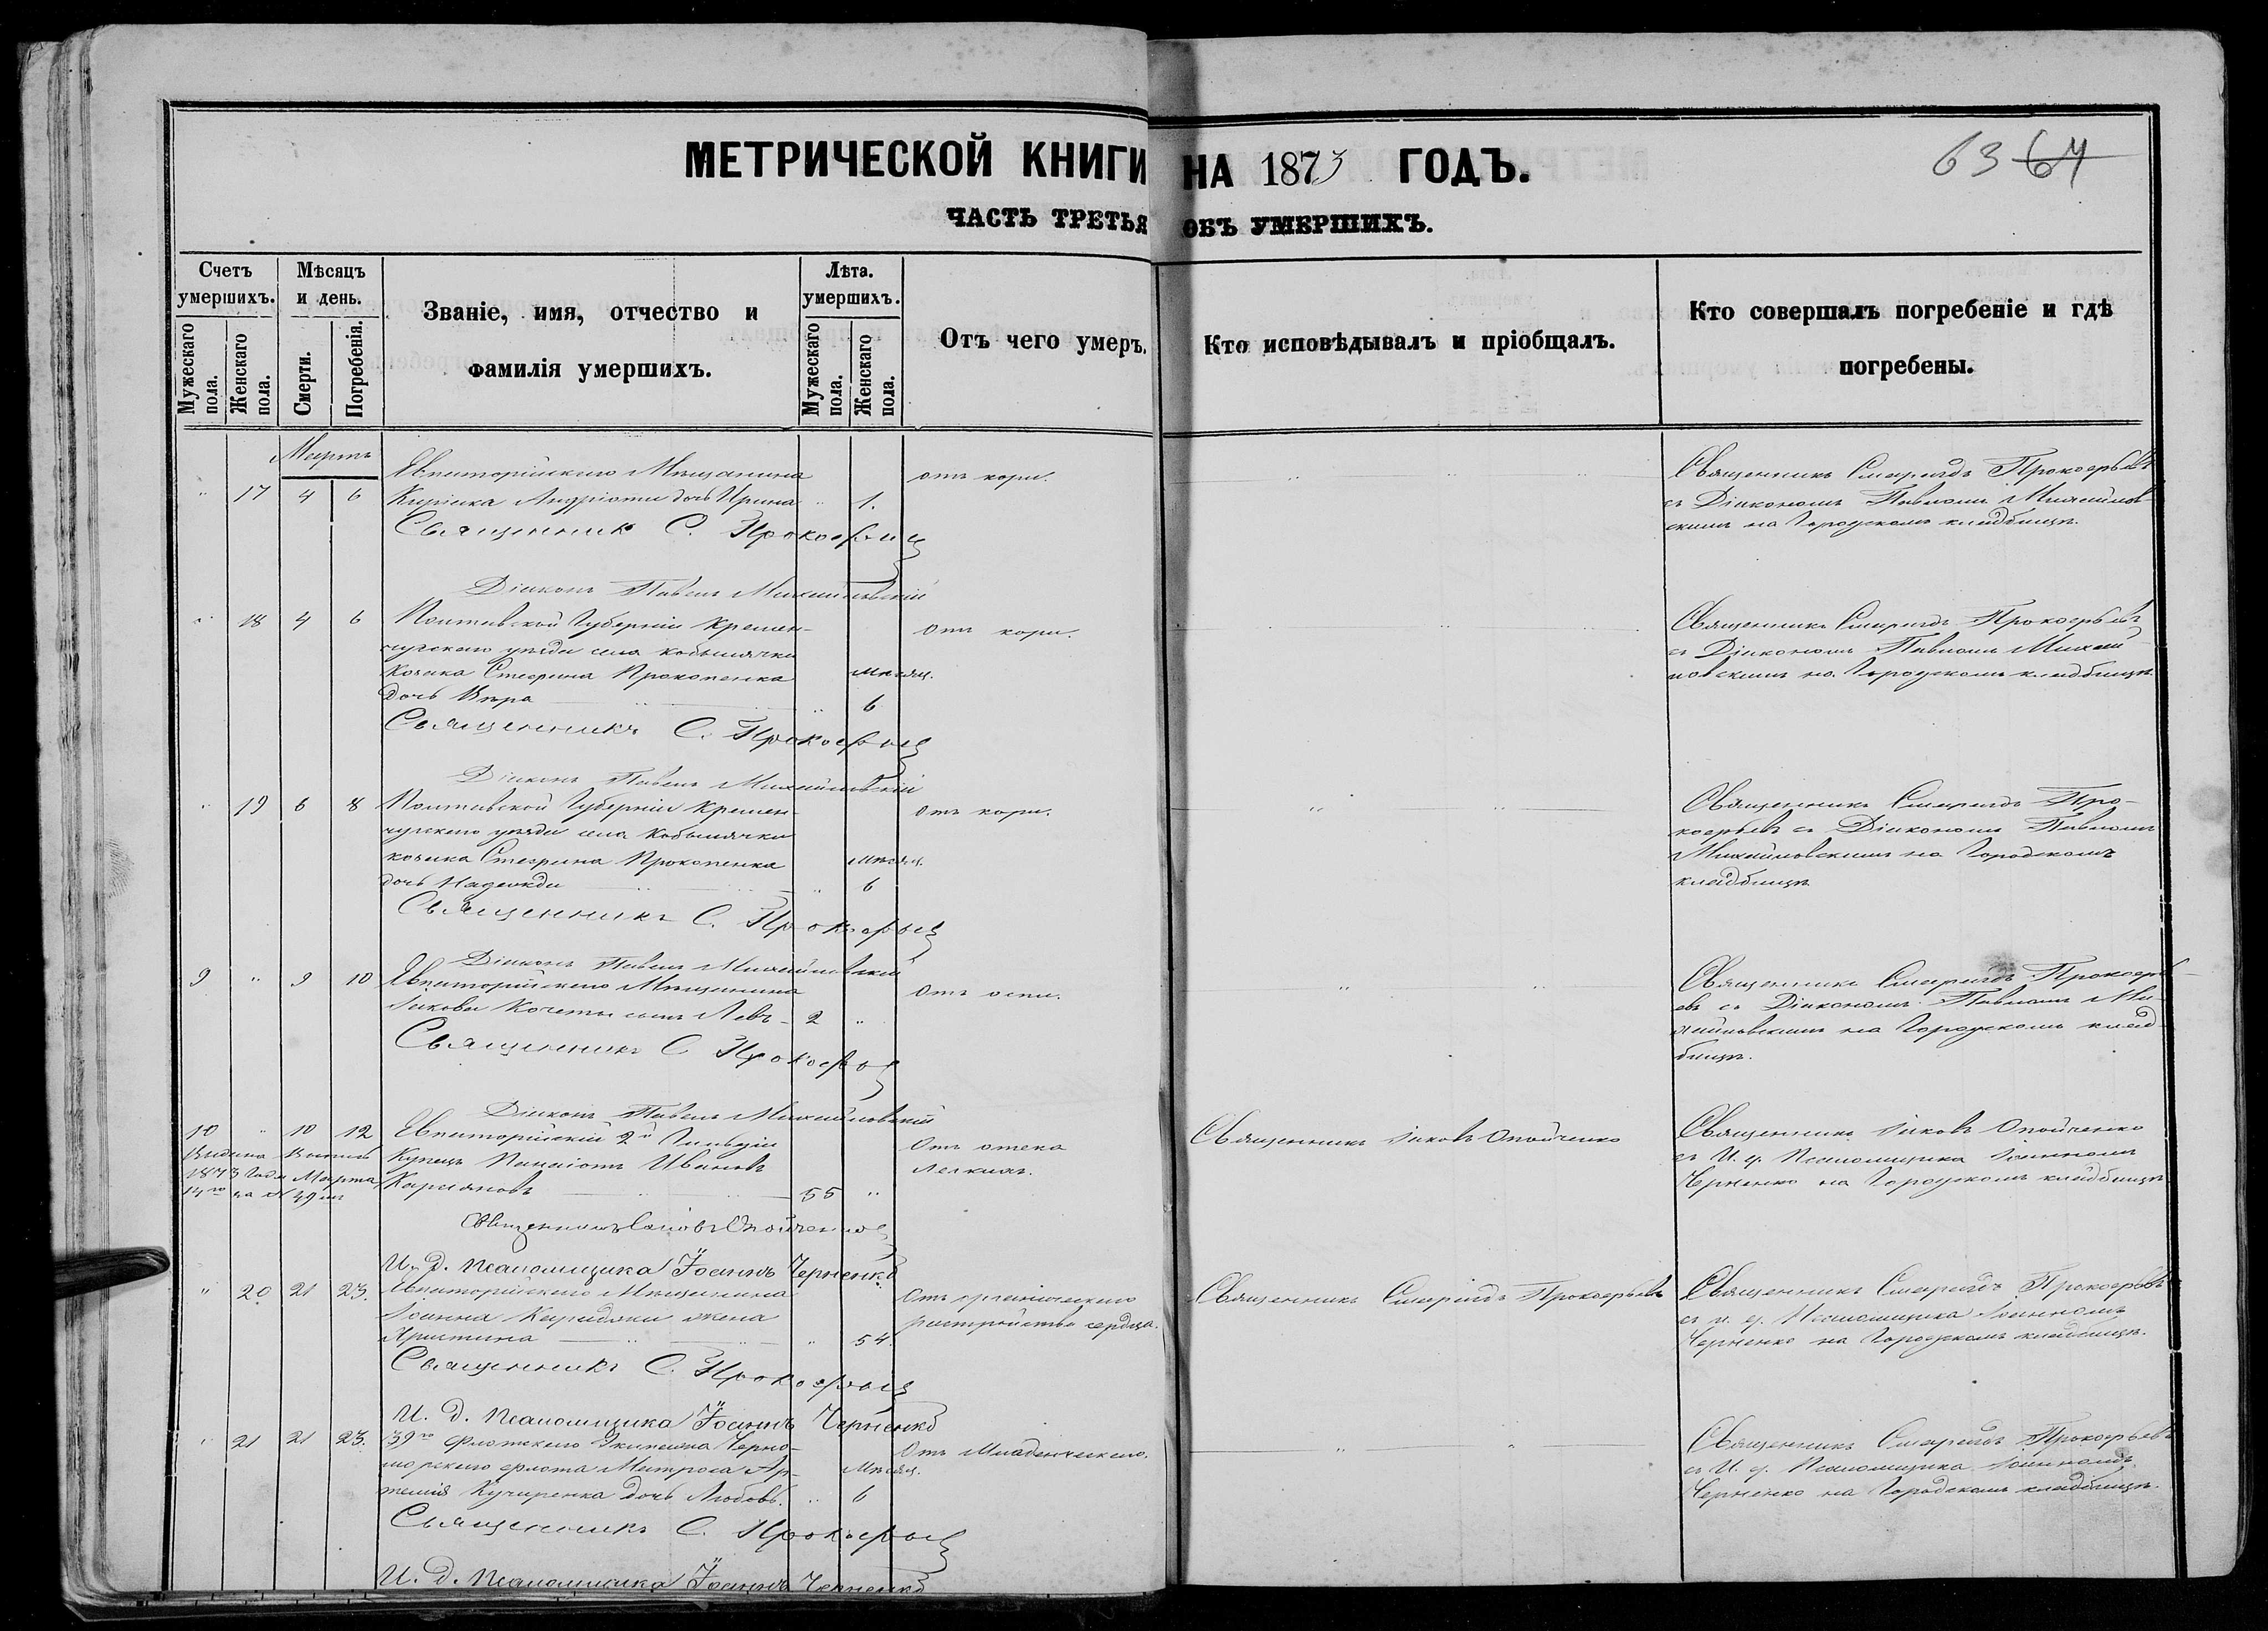 МЕТРИЧЕСКОЙ КНИГИ НА 1873 ГОДЪ.
63 64
ЧАСТЬ ТРЕТЬЯ ОБЪ УМЕРШИХЪ.
Счетъ умершихъ.
Мужескаго пола.
Женскаго пола.
Мѣсяцъ и день.
Смерти.
Погребенія.
Званіе, имя, отчество и
фамилія умершихъ.
Лѣта умершихъ.
Мужескаго пола.
Женскаго пола.
Отъ чего умеръ.
Кто исповѣдывалъ и пріобщалъ.
Кто совершалъ погребеніе и гдѣ
погребены.
Мартъ
Евпаторійскаго Мѣщанина отъ кори. Священникъ Смарагдъ Прокофьевъ
" 17 4 6 дочь Ирина " 1. съ Діакономъ Павломъ Михайлов-
скимъ на Городскомъ кладбищѣ.
Священникъ С. Прокофьев
Діаконъ Павелъ Михайловскій
" 18 4 6 Полтавской Губерніи Кремен- Отъ кори. Священникъ Смарагдъ Прокофьевъ
чугскаго уѣзда села Кобылячки съ Діакономъ Павломъ Михай
козака Стефана Прокопенка мѣсяц. ловскимъ на Городскомъ кладбищѣ
дочь Вѣра " 6
Священникъ С. Прокофьев
Діаконъ Павелъ Михайловскій
" 19 6 8 Полтавской Губерніи Кремен- Отъ кори. Священникъ Смарагдъ Про-
чугскаго уѣзда села Кобылячки кофьевъ съ Діакономъ Павломъ
козака Стефана Прокопенка мѣсяц. Михайловскимъ на Городскомъ
дочь Надежда " 6 кладбищѣ
Священникъ С. Прокофьев
Діаконъ Павелъ Михайловскій
9 " 9 10 Евпаторійскаго Мѣщанина Отъ оспы. Священникъ Смарагдъ Прокофь-
Іакова сынъ Левъ - 2 " евъ съ Діакономъ Павломъ Ми-
хайловскимъ на Городскомъ клад-
бищѣ.
Священникъ С. Прокофьев
Діаконъ Павелъ Михайловскій
10 " 10 12 Евпаторійскій 2й Гильдіи Отъ отека Священникъ Іаковъ Опойченко Священникъ Іаковъ Опойченко
Выдана Выпись Купецъ Панаіотъ Ивановъ легкихъ. съ И. д. Псаломщика Іоанномъ
1873 Года Марта 55 " Черненко на Городскомъ кладбищѣ
14го за № 49мъ
Священникъ Іаковъ Опойченко
И. д. псаломщика Іоаннъ Черненко
" 20 21 23. Евпаторійскаго Мѣщанина Отъ органическаго Священникъ Смарагдъ Прокофьевъ Священникъ Смарагдъ Прокофьевъ
Іоанна жена растройства сердца. съ и. д. Псаломщика Іоанномъ
Христина " 54. Черненко на Городскомъ кладбищѣ.
Священникъ С. Прокофьев
И. д. псаломщика Іоаннъ Черненко
" 21 21 23. 39го Флотскаго Экипажа Черно- Отъ Младенческаго. Священникъ Смарагдъ Прокофьевъ
морскаго флота Матроса Ар- мѣсяц. съ И. д. Псаломщика Іоанномъ
темія Кучеренка дочь Любовь. " 6 Черненко на Городскомъ кладбищѣ.
Священникъ С. Прокофьев
И. д. псаломщика Іоаннъ Черненко